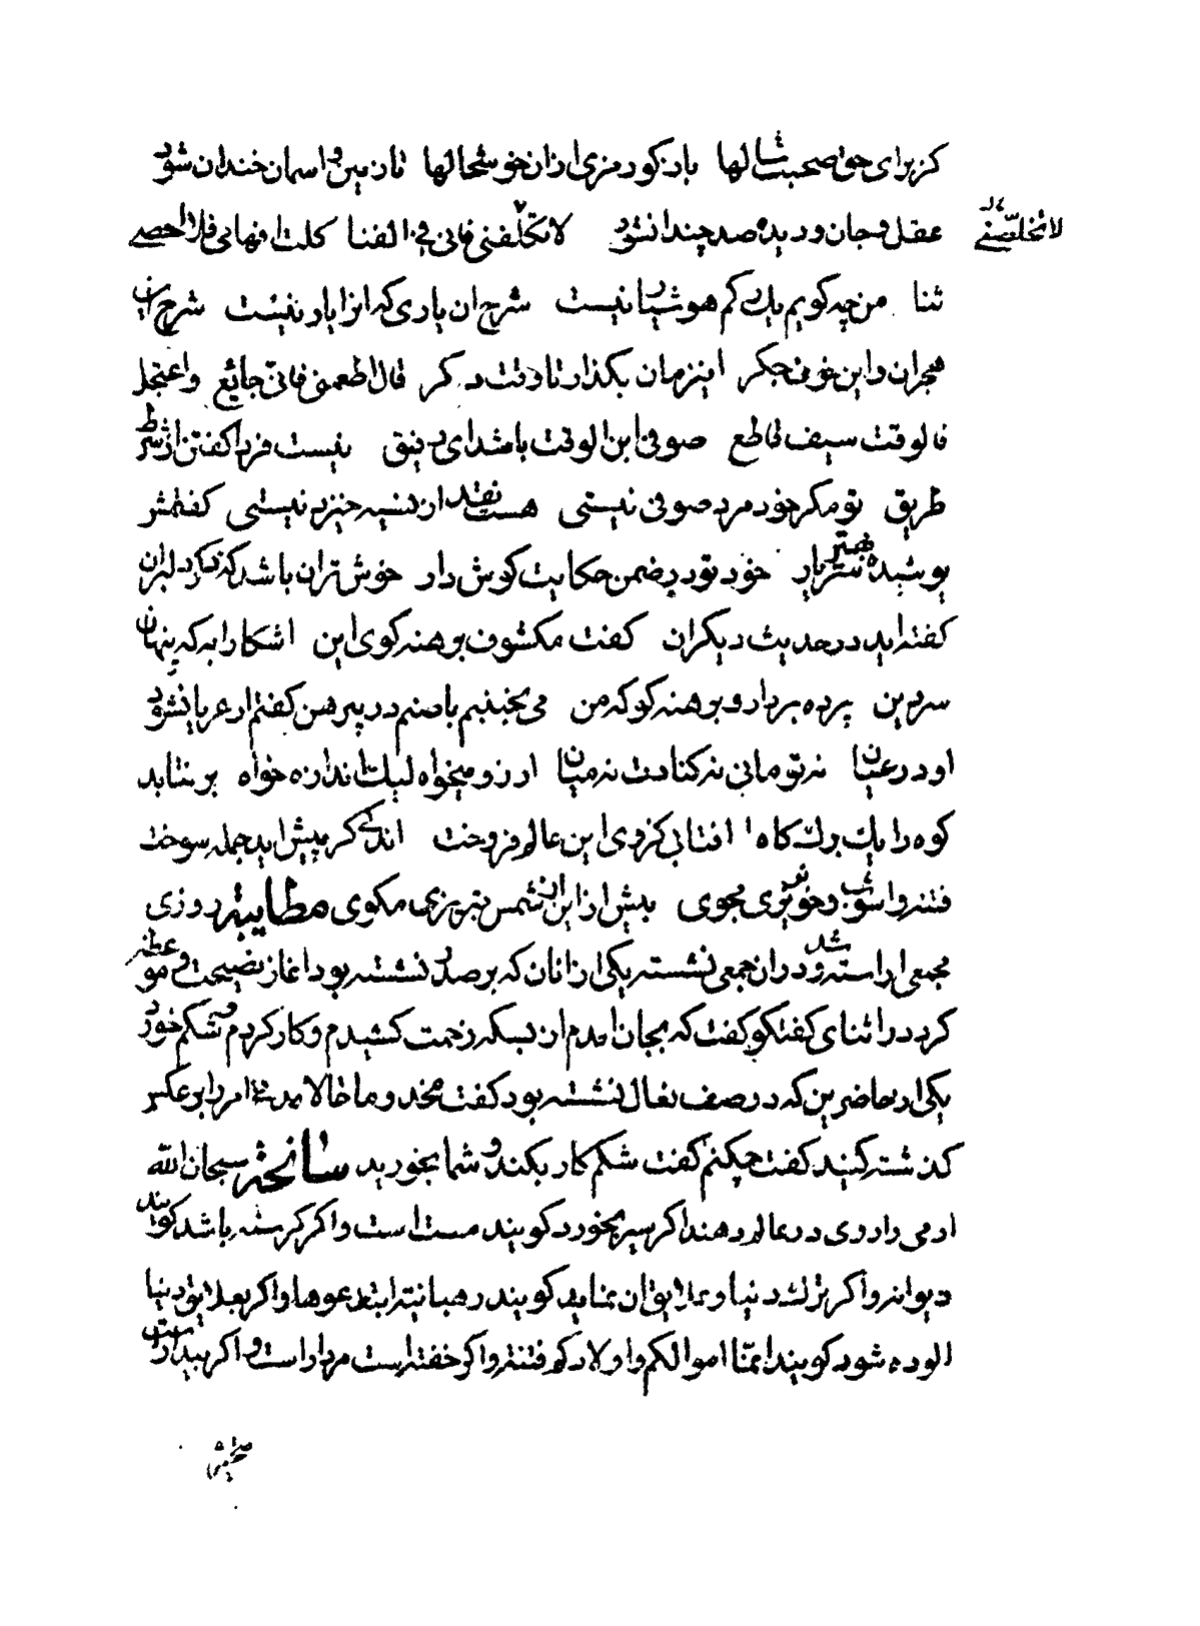 کز برای حق صحبت سالها باز کو رمزی ازان خوشحالها تا زمین و اسمان خندان شود
لا تخلصنے
عقل و جان و دیده صد چندان شود لا تکلفنی فانی فی الفنا کلت افهامی فلا احصے
ثنا من چه کویم یك رکم هوشیار نیست شرح ان یاری که انرا یار نیست شرح این
هجران و این خون جکر این زمان بکذار تا وقت دکر قال اطعمنی فانی جائع واعتجل
فالوقت سیف قاطع صوفی ابن الوقت باشد ای رفیق نیست فردا کفتن از شرط
طریق تو مکر خود مرد صوفی نیستی هست نقد از نسیه خیزد نیستی کفتمش
پوشیده بهتر سر یار خود تو در ضمن حکایت کوش دار خوش تر ان باشد که ذکر دلبران
کفته اید در حدیث دیکران کفت مکشوف برهنه کوی این اشکارا به که پنهان
سر دین پرده بردار و برهنه کو که من می نخسبم با صنم در پیرهن کفتم ار عریان شود
او در عیان نه تو مانی نه کنارت نه میان ارزو میخواه لیك اندازه خواه بر نتابد
کوه را یك برك کاه افتابی کز وی این عالم فروخت اندکے کر پیش اید جمله سوخت
فتنه و اشوب و خونریزی مجوی بیش ازین از شمس تبریزی مکوی مطایبة روزی
مجمعی اراسته شد و دران جمعی نشسته یکی از انان که بر صدر نشسته بود اغاز نصیحت و موعظه
کرد در اثنای کفتکو کفت که بجان امدم از بسکه زحمت کشیدم و کار کردم و شکم خورد
یکی از حاضرین که در صف نعال نشسته بود کفت مخدوما حالا امر را بر عکس
کذشته کنید کفت چکنم کفت شکم کار بکند و شما بخورید سانحة سبحان الله
ادمی را روی در عالم رهند اکر سیر بخورد کویند مست است و اکر کرسنه باشد کویند
دیوانه و اکر ترك دنیا و علایق ان نماید کویند رهبانیة ابتدعوها و اکر بعلایق دنیا
الوده شود کویند انمّا اموالکم و اولادکم فتنة و اکر خفته است مردار است و اکر بیدار